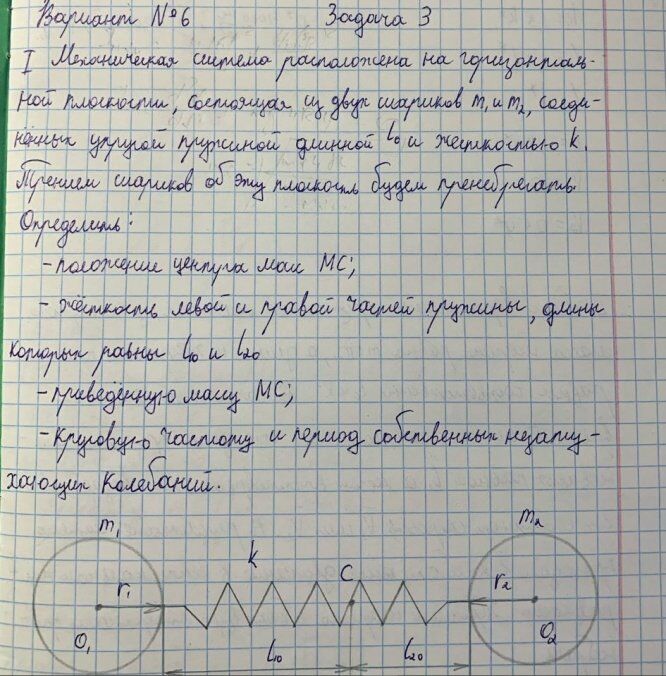 Вариант №6 Задача 3
I Механическая система расположена на горизонталь-
ной плоскости, состоящая из двух шариков m₁ и m₂, соеди-
нённых упругой пружиной длинной l₀ и жёсткостью k.
Трением шариков об эту плоскость будем пренебрегать.
Определить:
- положение центра масс МС;
- жёсткость левой и правой частей пружины, длины
которых равны l₁₀ и l₂₀
- приведённую массу МС;
- круговую частоту и период собственных незату-
хающих колебаний.
m₁ m₂
k C
r₁ r₂
O₁ O₂
l₁₀ l₂₀